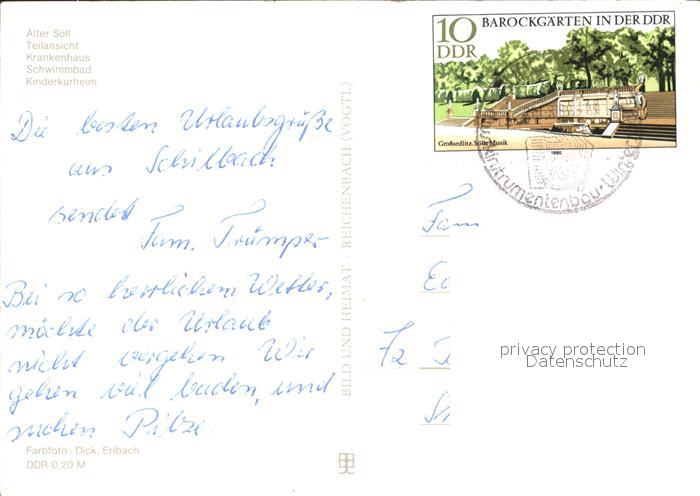 Alter Söll
Teilansicht
Krankenhaus
Schwimmbad
Kinderkurheim
10 BAROCKGÄRTEN IN DER DDR
DDR
Großsedlitz, Stille Musik
1980
Die besten Urlaubsgrüße
aus Schilbach
sendet
Fam. Trümper
Bei so herrlichem Wetter,
möchte der Urlaub
nicht vergehen Wir
gehen viel baden, und
suchen Pilze.
BILD UND HEIMAT · REICHENBACH (VOGTL)
Fam
72
privacy protection
Datenschutz
Farbfoto: Dick, Erlbach
DDR 0,20 M